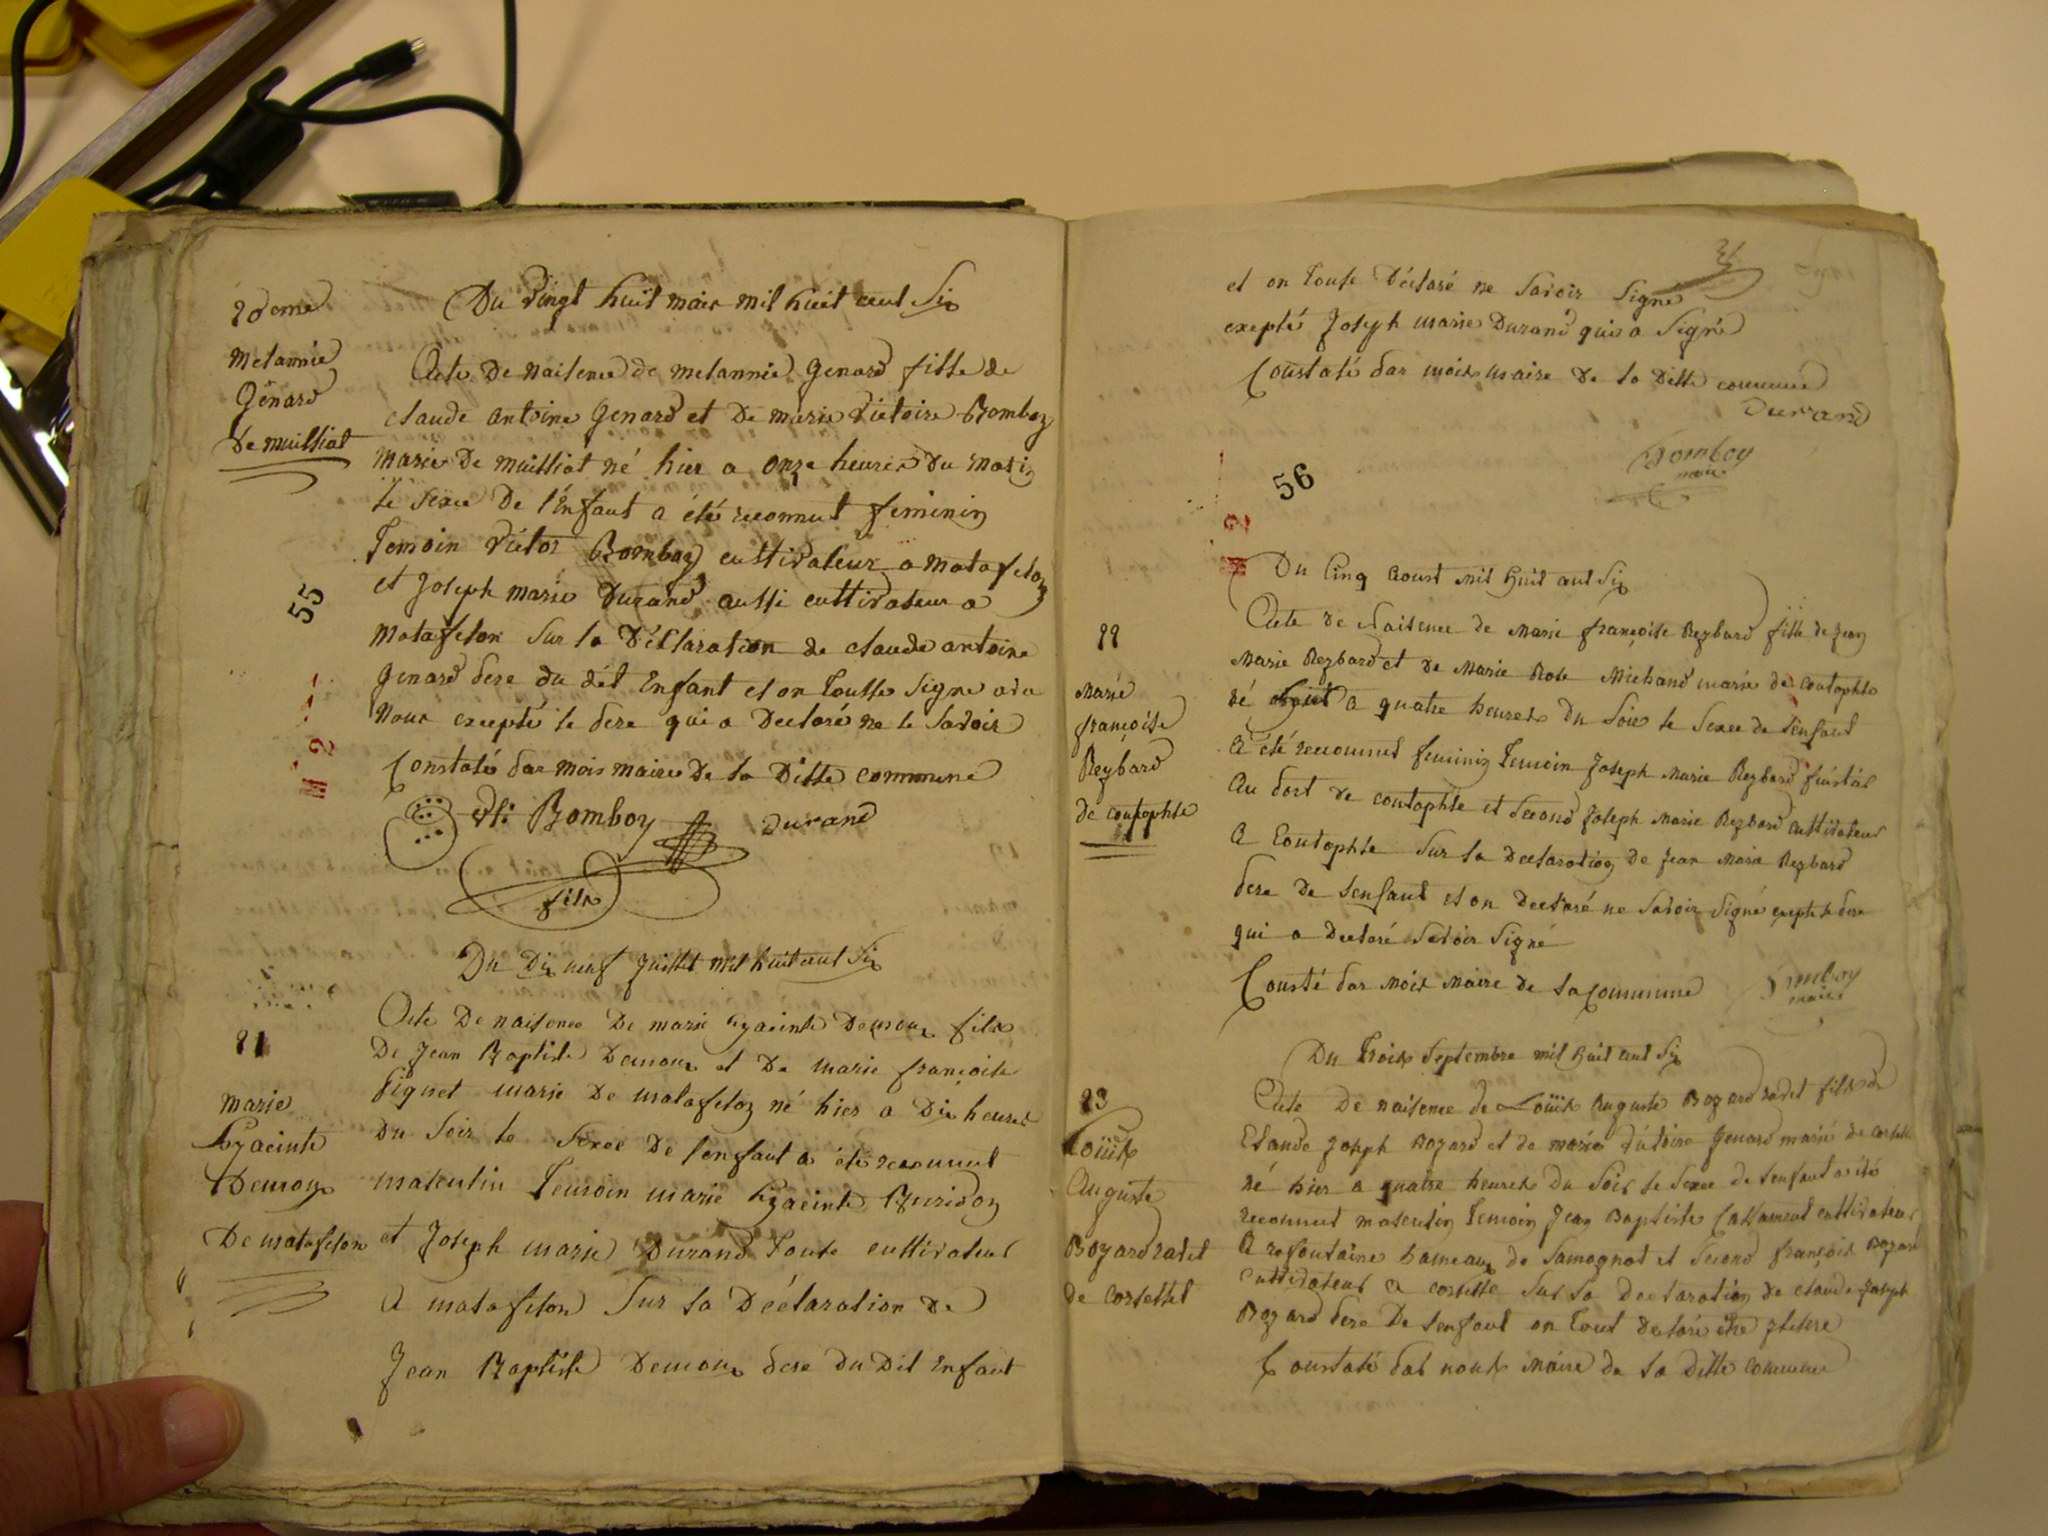 20eme
Melannie
Génard
De muilliat
Du Vingt huit mais mil huit cent Six
Acte De naisence de melannie genard fille de
claude antoine genard et De marie victoire Bomboy
mariés De muilliat né hier a onze heures du matin
le sexe De l'Enfant a été reconnut feminin
Temoin victor Bomboy cultivateur a matafelon
et Joseph marie Durand aussi cultivateur a
matafelon Sur la Déclaration de claude antoine
genard pere du dét Enfant et on Toutte Signe avec
Nous excepté le pere qui a Declaré ne le savoir
Constaté par mois maire De la Ditte commune
Bomboy Durand
fils
55
III 2
Du Dix neuf Juillet mil huit cent Six
21
marie
hyacinte
Demoux
De matafelon
Acte De naisence De marie hyacinte Demoux fils
De Jean Baptiste Demoux et De marie françoise
signet marie De matafelon né hier a Dix heures
Du Soir le Sexee De l'enfant a été reconnut
masculin Temoin marie hyacinte Buridon
et Joseph marie Durand Toute cultivateur
a matafelon Sur la Déclaration De
Jean Baptiste Demoux pere du Dit Enfant
et on Toute Déclaré ne Savoir Signé
exepté Joseph marie Durand qui a Signé
Constaté par mois maire de la Ditte commune
Durand
Bomboy
maire
56
III 2
Du Cinq Aoust mil huit cent Six
22
Marie
françoise
Reybard
de coutophle
Acte de Naisence de Marie françoise Reybard fille de Jean
Marie Reybard et de Marie Rose Michaud mariés de Coutophle
né a quatre heures du Soir le Sexee de l'enfant
a été reconnut feminin Temoin Joseph Marie Reybard
Au port de coutophle et Second Joseph Marie Reybard Cultivateur
a Coutophle Sur la Declaration de Jean Marie Reybard
pere De l'enfant et on Declaré ne Savoir Signé exepté le pere
qui a Declaré Savoir Signé
Consté par Mois Maire de la Commune
Bomboy
maire
Du Trois Septembre mil huit cent Six
23
Loüis
Auguste
Bozard radet
de Corcelles
Acte De naisence de Loüis Auguste Bozard radet fils de
Claude Joseph Bozard et de marie victoire Genard mariés de
né hier a quatre heures du Soir le Sexee de l'enfant a été
reconnut masculin Temoin Jean Baptiste cultivateur
A rofontaine hameaux de Samognat et Second françois Bozard
Cultivateur a Sur la Declaration de claude Joseph
Bozard pere De l'enfant on Tout declaré
Constaté par nous Maire de la ditte commune